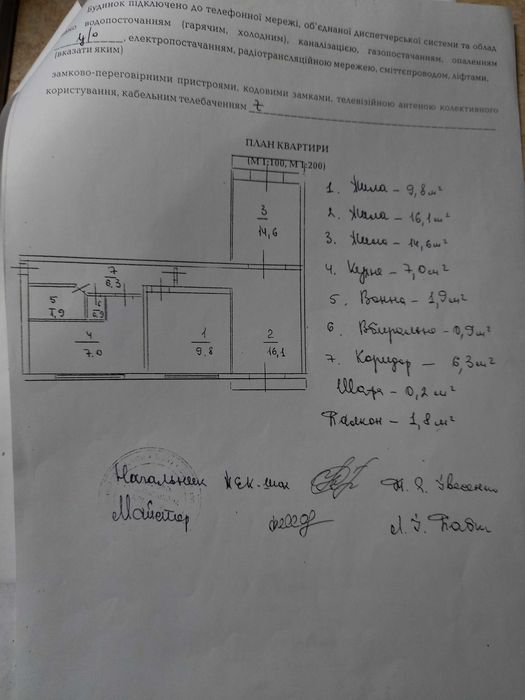 Будинок підключено до телефонної мережі, об'єднаної диспетчерської системи та облад
нано водопоточанням (гарячим, холодним), каналізацією, газопостачанням, опаленням
ц/о, електропостачанням, радіотрансляційною мережею, сміттєпроводом, ліфтами,
(вказати яким)
замково-переговірними пристроями, кодовими замками, телевізійною антеною колективного
користування, кабельним телебаченням
ПЛАН КВАРТИРИ
(М 1:100, М 1:200)
3
14,6
7
6.3
5
1,9
6
0,9
4
7.0
1
9.8
2
16,1
1. Жила – 9,8 м²
2. Жила – 16,1 м²
3. Жила – 14,6 м²
4. Кухня – 7,0 м²
5. Ванна – 1,9 м²
6. Вбиральня – 0,9 м²
7. Коридор – 6,3 м²
Шафа – 0,2 м²
Балкон – 1,8 м²
Начальник ЖЕК
Майстер